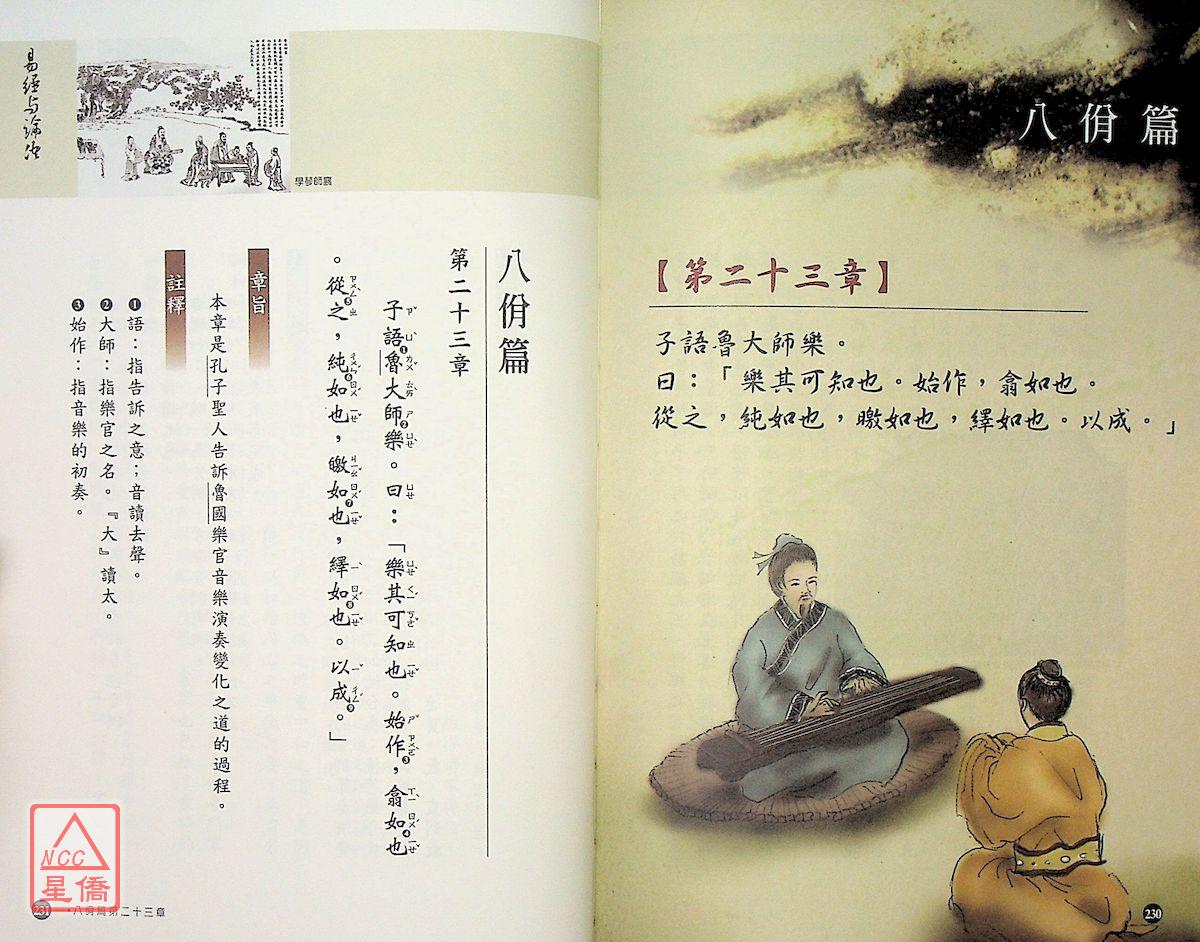 八佾篇
【第二十三章】
子語魯大師樂。
曰：「樂其可知也。始作，翕如也。
從之，純如也，皦如也，繹如也。以成。」
230
易經與論語
學琴師襄
八佾篇
第二十三章
子語❶魯大師❷樂。曰：「樂其可知也。始作❸，翕如❹也
。從❺之，純如❻也，皦如❼也，繹如❽也。以成❾。」
章旨
本章是孔子聖人告訴魯國樂官音樂演奏變化之道的過程。
註釋
❶語：指告訴之意；音讀去聲。
❷大師：指樂官之名。『大』讀太。
❸始作：指音樂的初奏。
231 ·八佾篇第二十三章
NCC
星僑